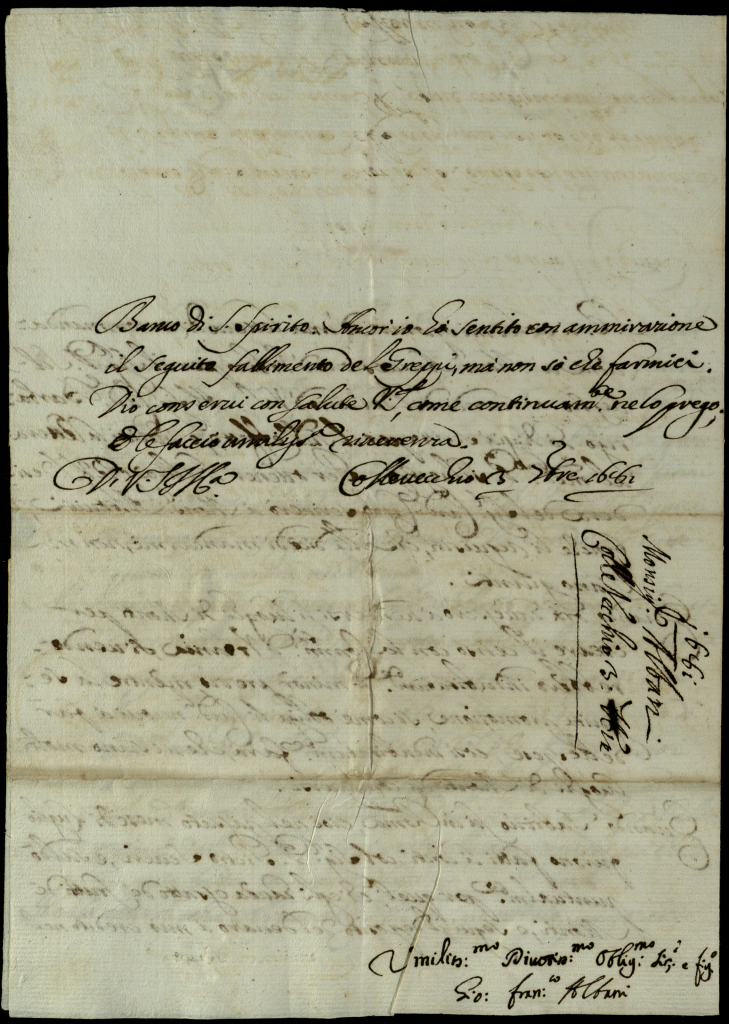 Banco di S. Spirito. Ancor io hò sentito con ammirazione
il seguito fallimento del Greppi, mà non sò che farmici.
Dio conservi con salute V.S., come continuam.te ne lo prego,
e le faccio umiliss.a riverenza.
Di V.S. Ill.ma Castelvecchio 3 Xbre
1691
Monsig.r Albani
Castel Vecchio 3. Xbre
Umiliss:mo Divotis:mo Oblig:mo Ser.e e fig.o
Gio: Fran:co Albani